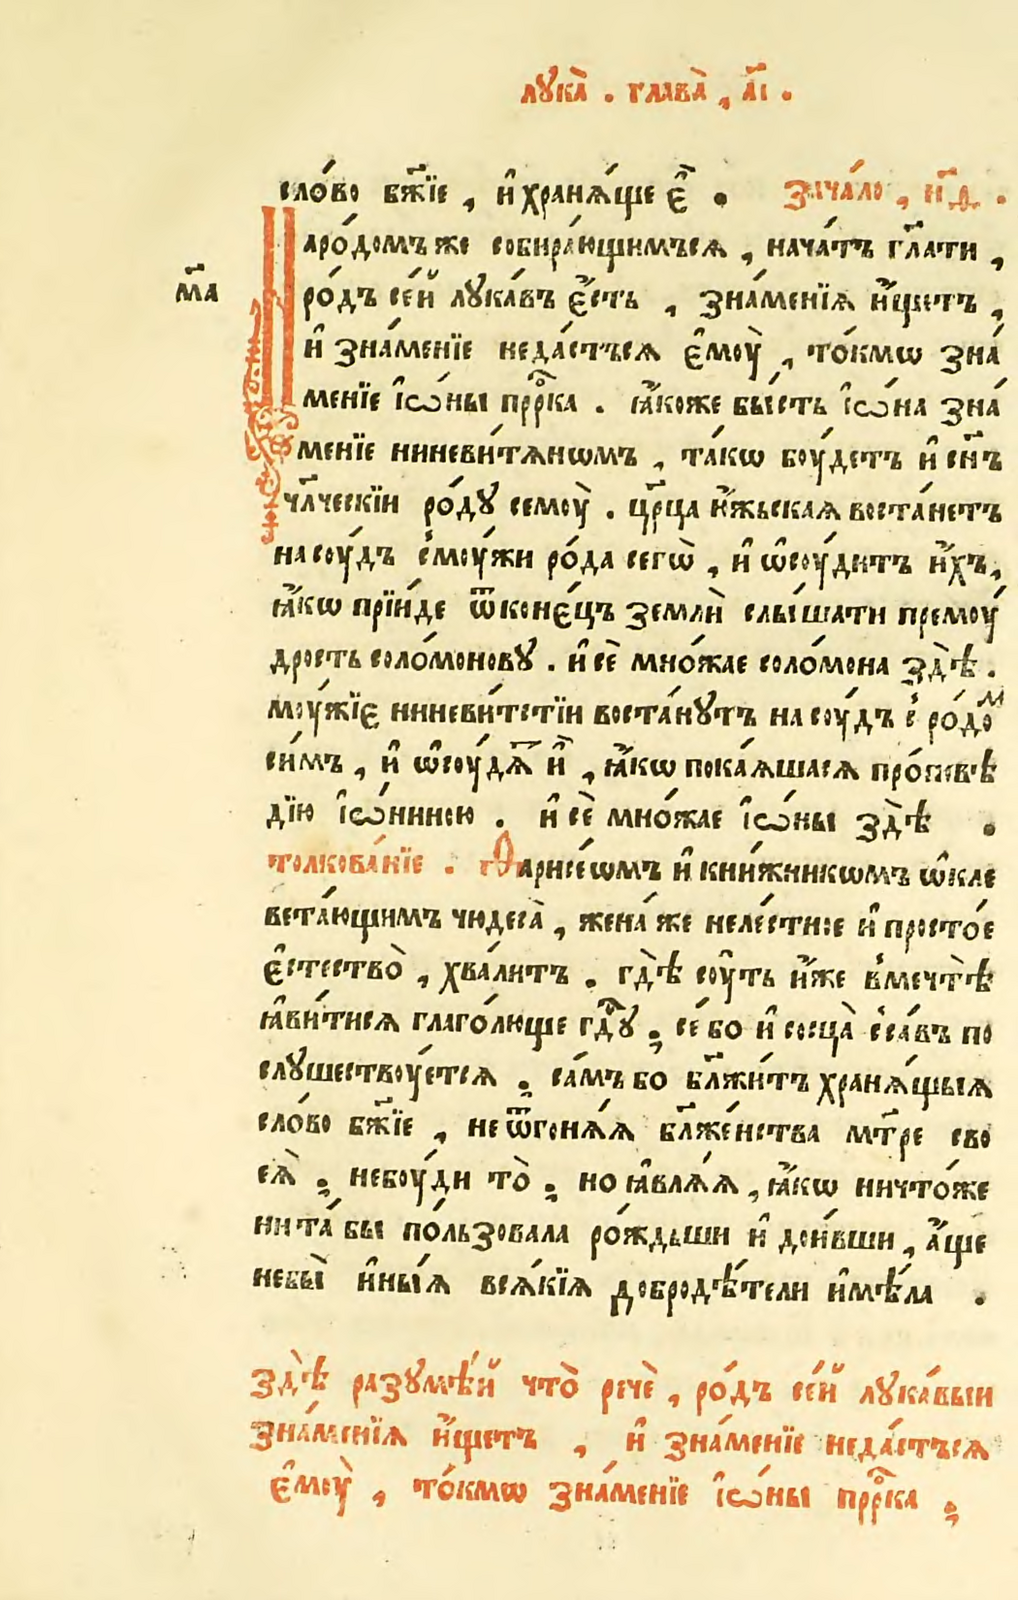 лꙋка̀ . глава̀ , а҃і .
сло́во бж҃їе , и҆хранѧ́ще є҆̀ . зача́ло , н҃д .
Наро́домъ же собира́ющимъсѧ , нача́тъ гл҃ати ,
м҃а
ро́дъ се́й лꙋка́въ є҆́сть , зна́менїѧ и҆́щетъ ,
и҆ зна́менїе неда́стъсѧ є҆моу̀ , то́кмѡ зна́
менїе і҆ѡ́ны прⷪ҇рка . ꙗ҆́коже бы́сть і҆ѡ́на зна́
менїе ниневи́тѧнѡмъ , та́кѡ боу́детъ и҆ сн҃ъ
чл҃ческїи ро́дꙋ семоу̀ . цр҃ца ю҆́жьскаѧ воста́нетъ
насоу́дъ с̾моу́жи ро́да сегѡ̀ , и҆ ѡ҆соу́дитъ и҆́хъ ,
ꙗ҆́кѡ прїи́де ѿконє́цъ землѝ слы́шати премоу́
дрость соломо́новꙋ . и҆ сѐ мно́жае соломо́на здѣ̀ .
моу́жїє ниневи́тстїи воста́нꙋтъ насоу́дъ с̾ ро́доⷨ
си́мъ , и҆ ѡ҆соу́дѧ҃ и҆̀ , ꙗ҆́кѡ пока́ѧшасѧ про́повѣ
дїю і҆ѡ́ниною . и҆ сѐ мно́жае і҆ѡ́ны здѣ̀ .
толкова́ние . Фарисе́ѡмъ и҆ кни́жникѡмъ ѡ҆кле
вета́ющимъ чюдеса̀ , жена́ же неле́стное и҆ просто́е
є҆стество̀ , хва́литъ . гдѣ̀ соу́ть и҆́же в̾мечтѣ̀
ꙗ҆ви́тисѧ глаго́люще гдⷭ҇ꙋ ; се́ бо и҆ сосца̀ с̾са́въ по
слꙋшествоу́етсѧ ; са́мъ бо бл҃жи́тъ хранѧ́щыѧ
сло́во бж҃їе , не ѿгонѧ́ѧ бл҃же́нства мт҃ре сво
еѧ̀ ; небоу́ди то̀ ; но ꙗ҆влѧ́ѧ , ꙗ҆́кѡ ничто́же
ни та́ бы по́льзовала ро́ждьши и҆ дои́вши , а҆́ще
небы̀ и҆ны́ѧ всѧ́кїѧ добродѣ́тели и҆мѣ́ла .
здѣ̀ разꙋмѣ́й что̀ речѐ , ро́дъ се́й лꙋка́выи
зна́менїѧ и҆́щетъ , и҆ зна́менїе неда́стъсѧ
є҆моу̀ , то́кмѡ зна́менїе і҆ѡ́ны прⷪ҇рка ;